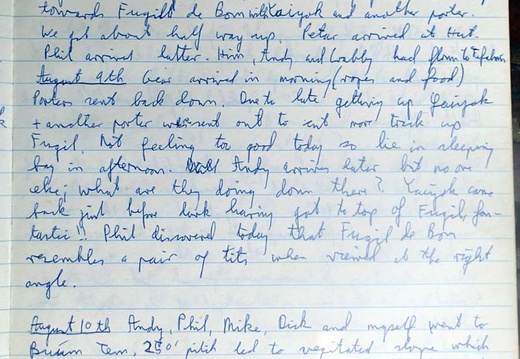 towards Fugilt de Bom with Yaiyok and another porter.
We got about half way up. Petar arrived at Hut.
Phil arrived latter. Him, Andy and Crabby had flown to Tifalmin
August 9th Gear arrived in morning (ropes and food)
Porters sent back down. Due to late getting up Yaiyok
+ another porter were sent out to cut more track up
Fugil. Not feeling too good today so lie in sleeping
bag in afternoon. Andy arrives later but no one
else; what are they doing down there? Yaiyok came
back just before dark having got to top of Fugil, fan-
tastic!! Phil discovered today that Fugil de Bom
resembles a pair of tits when viewed at the right
angle.
August 10th Andy, Phil, Mike, Dick and myself went to
Tem, 250' pitch led to vegitated slope which